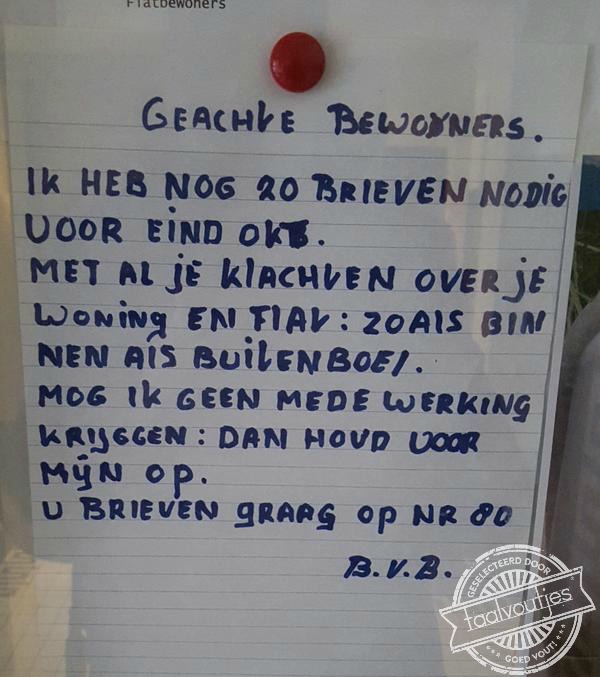 Flatbewoners
GEACHTE BEWOYNERS.
IK HEB NOG 20 BRIEVEN NODIG
VOOR EIND OKT.
MET AL JE KLACHTEN OVER JE
WONING EN FLAT: ZOALS BIN
NEN ALS BUITENBOEL.
MOG IK GEEN MEDE WERKING
KRIJGGEN: DAN HOUD VOOR
MIJN OP.
U BRIEVEN GRAAG OP NR 80
B.V.B.
GESELECTEERD DOOR
taalvoutjes
GOED VOUT!